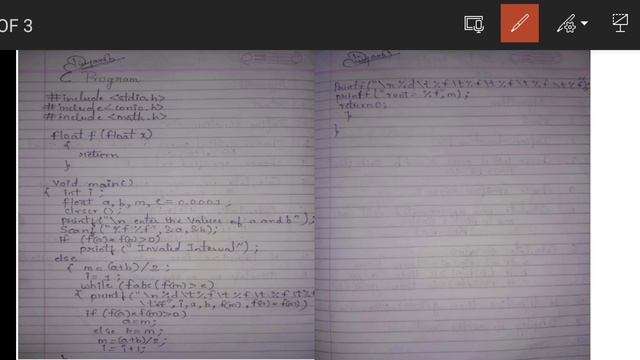 OF 3
C Program
#include <stdio.h>
#include <conio.h>
#include <math.h>
float f (float x)
{
return
}
void main()
{ int i ;
float a, b, m, e = 0.0001 ;
clrscr () ;
printf ("\n enter the values of a and b") ;
Scanf ("%f %f", &a, &b);
if (f(a) * f(b) > 0)
printf (" Invalid Interval") ;
else
{ m = (a+b) / 2 ;
i = 1 ;
while (fabs (f(m) > e)
{ printf ("\n %d \t %f \t %f \t %f \t %f
, i, a, b, f(m), f(a) * f(m))
if (f(a) * f(m) > 0)
a = m;
else b = m;
m = (a+b)/2 ;
i = i+1;
}
printf ("\n %d \t %f \t %f \t %f \t %f \t %f
printf ("root = %f, m) ;
return 0;
}
}